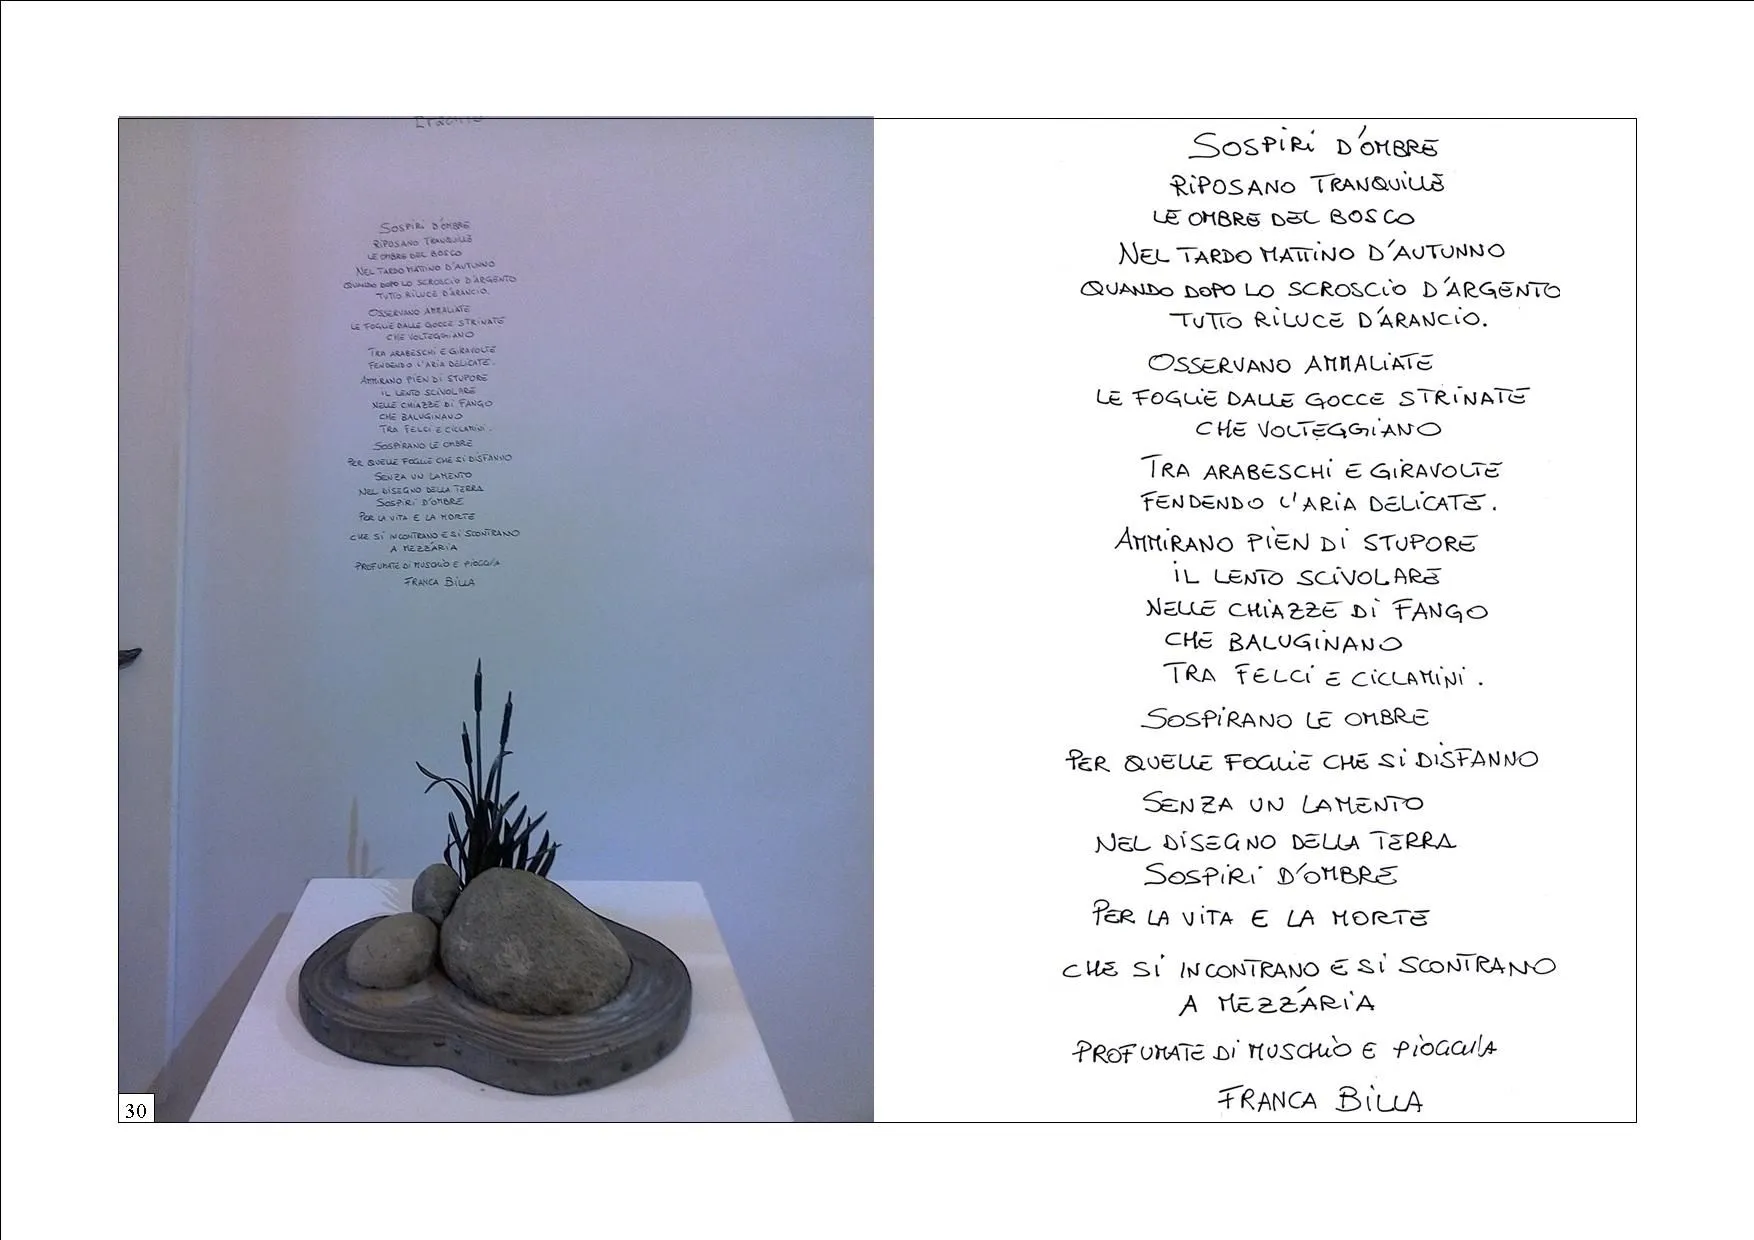 SOSPIRI D'OMBRE
RIPOSANO TRANQUILLE
LE OMBRE DEL BOSCO
NEL TARDO MATTINO D'AUTUNNO
QUANDO DOPO LO SCROSCIO D'ARGENTO
TUTTO RILUCE D'ARANCIO.
OSSERVANO AMMALIATE
LE FOGLIE DALLE GOCCE STRINATE
CHE VOLTEGGIANO
TRA ARABESCHI E GIRAVOLTE
FENDENDO L'ARIA DELICATE.
AMMIRANO PIEN DI STUPORE
IL LENTO SCIVOLARE
NELLE CHIAZZE DI FANGO
CHE BALUGINANO
TRA FELCI E CICLAMINI.
SOSPIRANO LE OMBRE
PER QUELLE FOGLIE CHE SI DISFANNO
SENZA UN LAMENTO
NEL DISEGNO DELLA TERRA
SOSPIRI D'OMBRE
PER LA VITA E LA MORTE
CHE SI INCONTRANO E SI SCONTRANO
A MEZZ'ARIA
PROFUMATE DI MUSCHIO E PIOGGIA
FRANCA BILLA
30
SOSPIRI D'OMBRE
RIPOSANO TRANQUILLE
LE OMBRE DEL BOSCO
NEL TARDO MATTINO D'AUTUNNO
QUANDO DOPO LO SCROSCIO D'ARGENTO
TUTTO RILUCE D'ARANCIO.
OSSERVANO AMMALIATE
LE FOGLIE DALLE GOCCE STRINATE
CHE VOLTEGGIANO
TRA ARABESCHI E GIRAVOLTE
FENDENDO L'ARIA DELICATE.
AMMIRANO PIEN DI STUPORE
IL LENTO SCIVOLARE
NELLE CHIAZZE DI FANGO
CHE BALUGINANO
TRA FELCI E CICLAMINI.
SOSPIRANO LE OMBRE
PER QUELLE FOGLIE CHE SI DISFANNO
SENZA UN LAMENTO
NEL DISEGNO DELLA TERRA
SOSPIRI D'OMBRE
PER LA VITA E LA MORTE
CHE SI INCONTRANO E SI SCONTRANO
A MEZZ'ARIA
PROFUMATE DI MUSCHIO E PIOGGIA
FRANCA BILLA